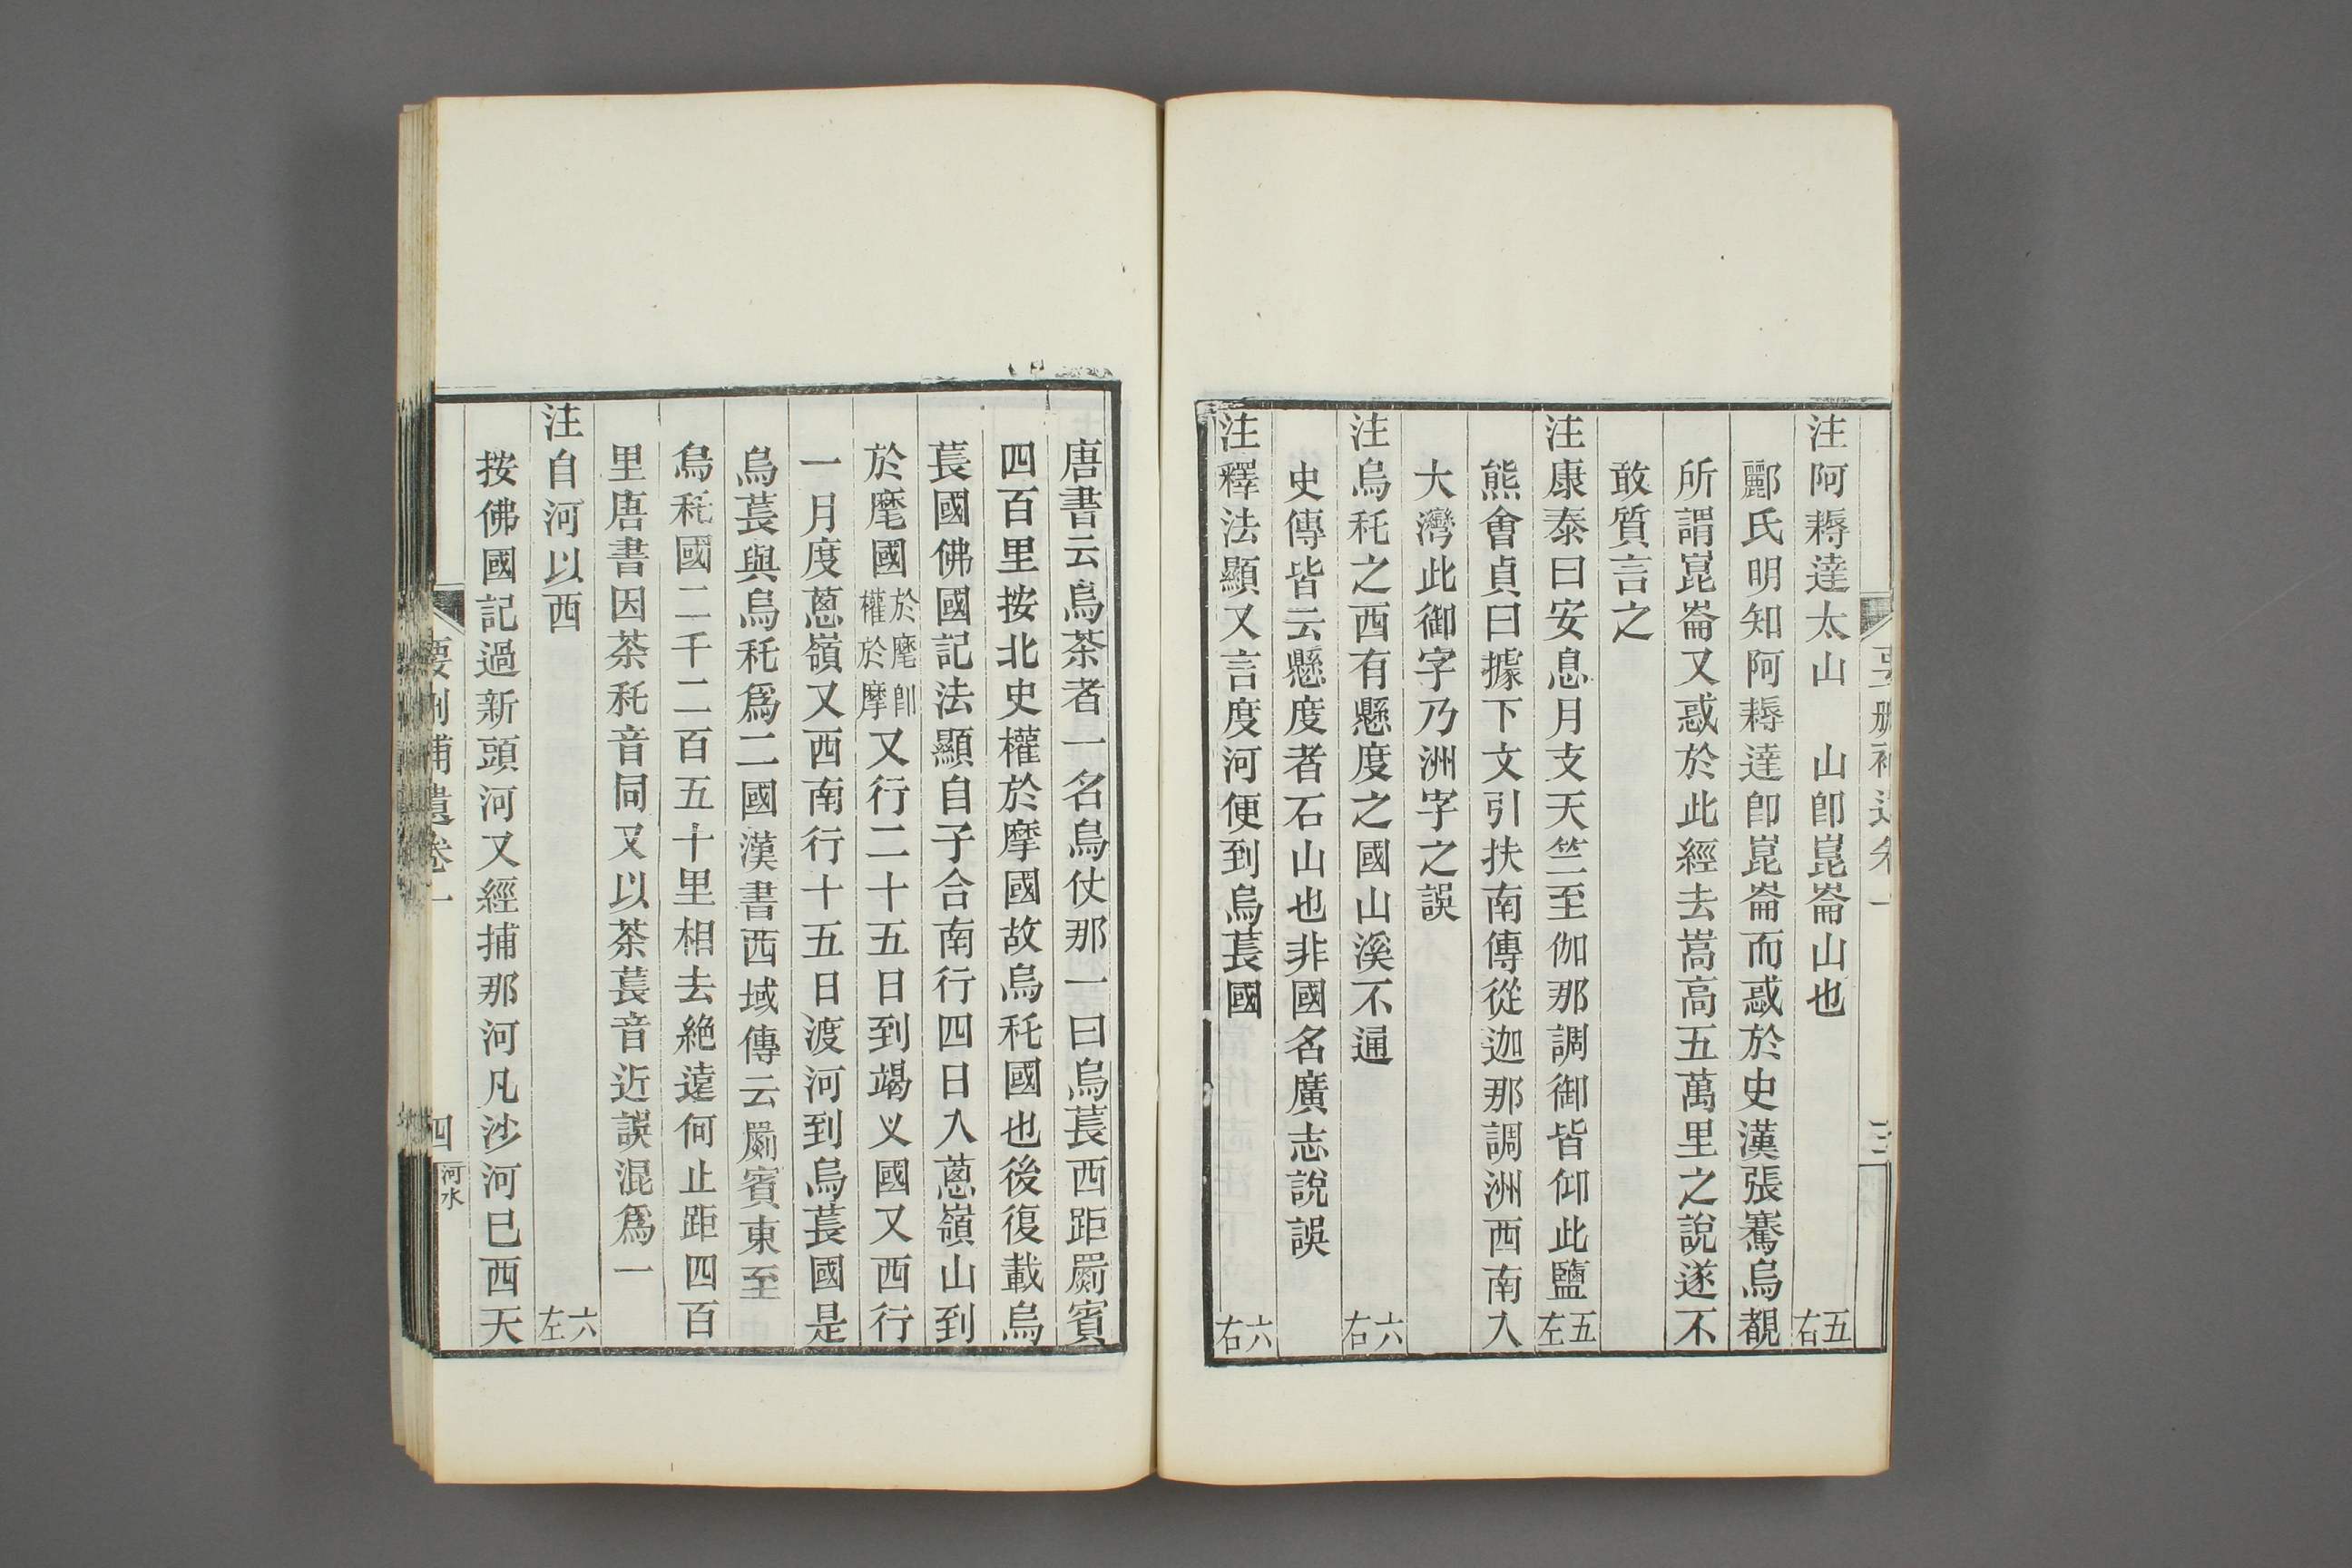 注阿耨達太山　山卽崑崙山也　五右
酈氏明知阿耨達卽崑崙而惑於史漢張騫烏覩
所謂崑崙又惑於此經去嵩高五萬里之說遂不
敢質言之
注康泰曰安息月支天竺至伽那調御皆仰此鹽　五左
熊會貞曰據下文引扶南傳從迦那調洲西南入
大灣此御字乃洲字之誤
注烏秅之西有懸度之國山溪不通　六右
史傳皆云懸度者石山也非國名廣志說誤
注釋法顯又言度河便到烏萇國　六右
唐書云烏茶者一名烏仗那一曰烏萇西距罽賓
四百里按北史權於摩國故烏秅國也後復載烏
萇國佛國記法顯自子合南行四日入蔥嶺山到
於麾國於麾卽權於摩又行二十五日到竭义國又西行
一月度蔥嶺又西南行十五日渡河到烏萇國是
烏萇與烏秅爲二國漢書西域傳云罽賓東至
烏秅國二千二百五十里相去絶遠何止距四百
里唐書因茶秅音同又以茶萇音近誤混爲一
注自河以西　六左
按佛國記過新頭河又經捕那河凡沙河已西天
要刪補遺卷一　四　河水